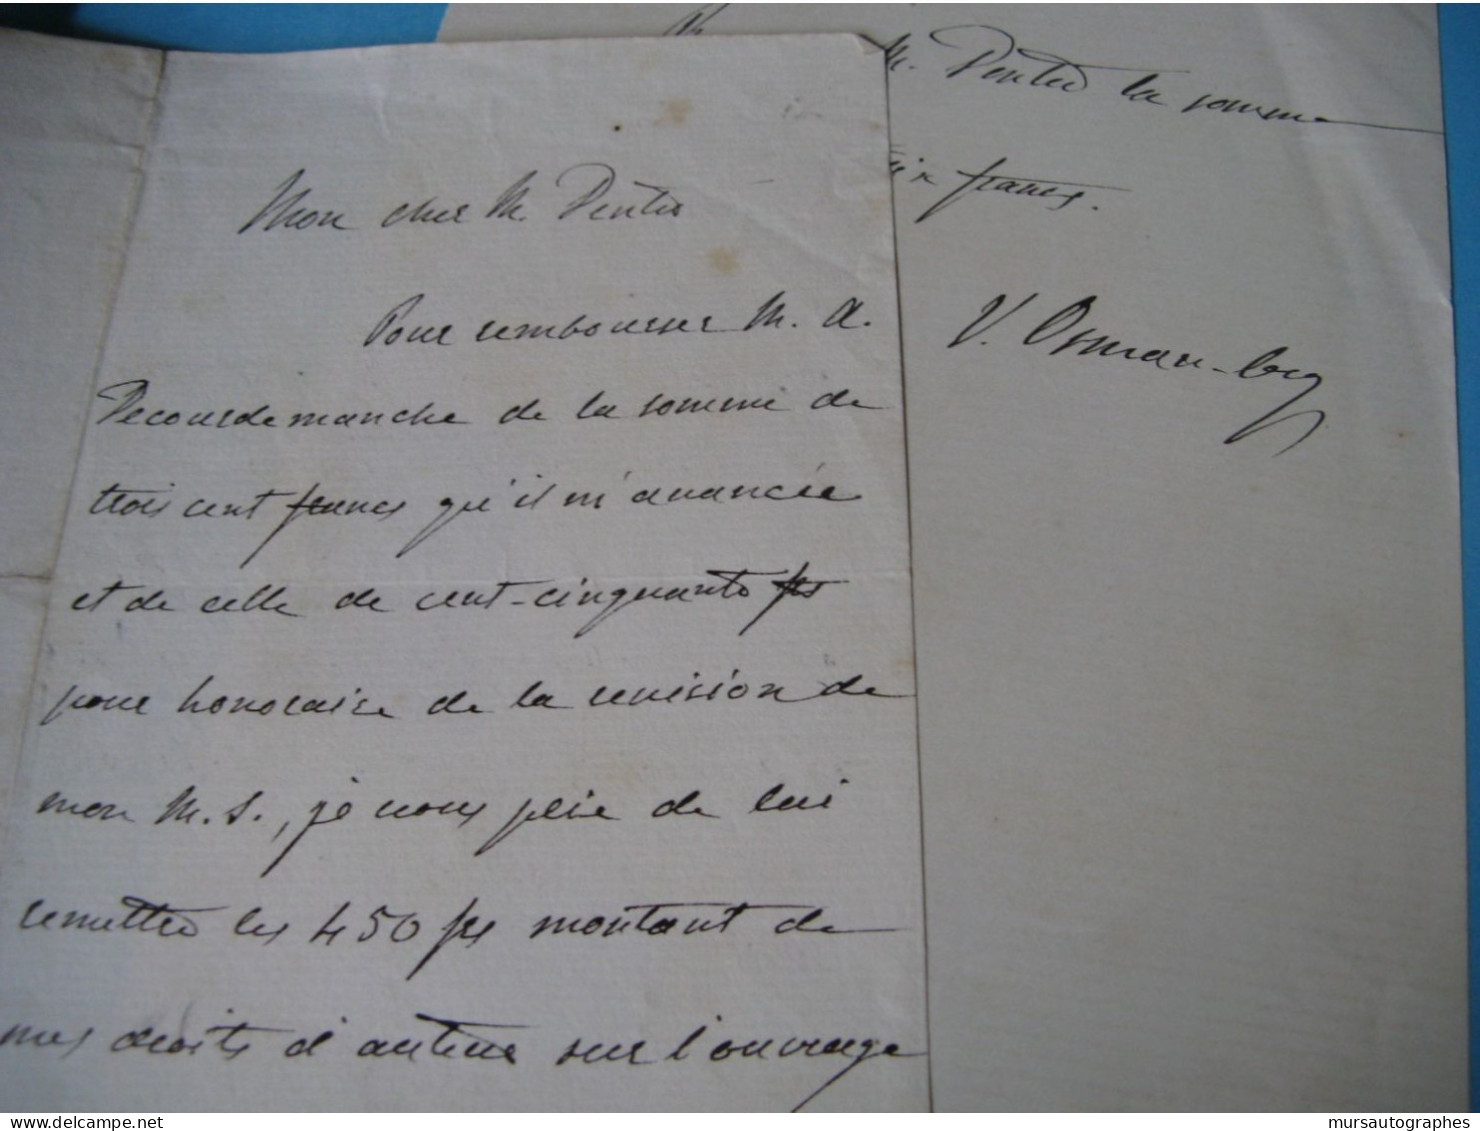 Mon cher M. Dentu
Pour rembourser M. A.
Decourdemanche de la somme de
trois cent francs qu'il m'avancée
et de celle de cent-cinquante frs
pour honoraire de la revision de
mon M.S., je vous prie de lui
remettre les 450 frs montant de
mes droits d'auteur sur l'ouvrage
M. Dentu la somme
francs.
V. Osman-bey
mursautographes